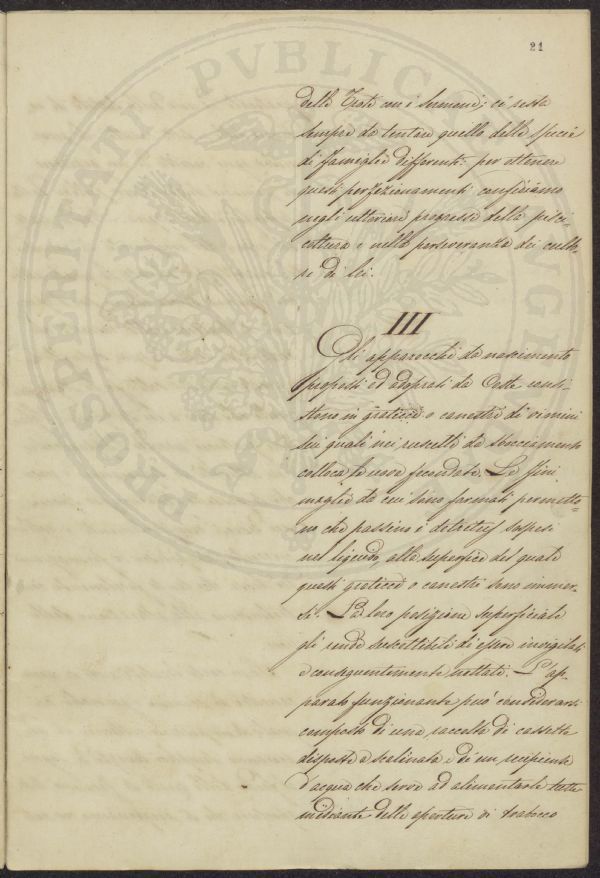 21
PROSPERITATI PVBLICAE AVGENDAE
delle Trote con i Sermoni; ci resta
sempre da tentare quello delle specie
di famiglie differenti: per ottenere
questi perfezionamenti confidiamo
negli ulteriori progressi della pisci,
coltura e nella perseveranza dei culto,
ri di lei.
III
Gli apparecchi da nascimento
proposti ed adoprati da Coste consi,
stono in graticci o canestri di vimini
sui quali nei ruscelli da sbocciamento
colloca le uova fecondate. Le fini
maglie da cui sono formati permetto=
no che passino i detritus sospesi
nel liquido, alla superfice del quale
questi graticci o canestri sono immer,
si. La loro posizione superficiale
gli rende suscettibili di essere invigilati
e conseguentemente nettati. L'ap,
parato funzionante può considerarsi
composto di una raccolta di cassette
disposte a scalinata e di un recipiente
d'acqua che serve ad alimentarle tutte
mediante delle aperture di trabocco